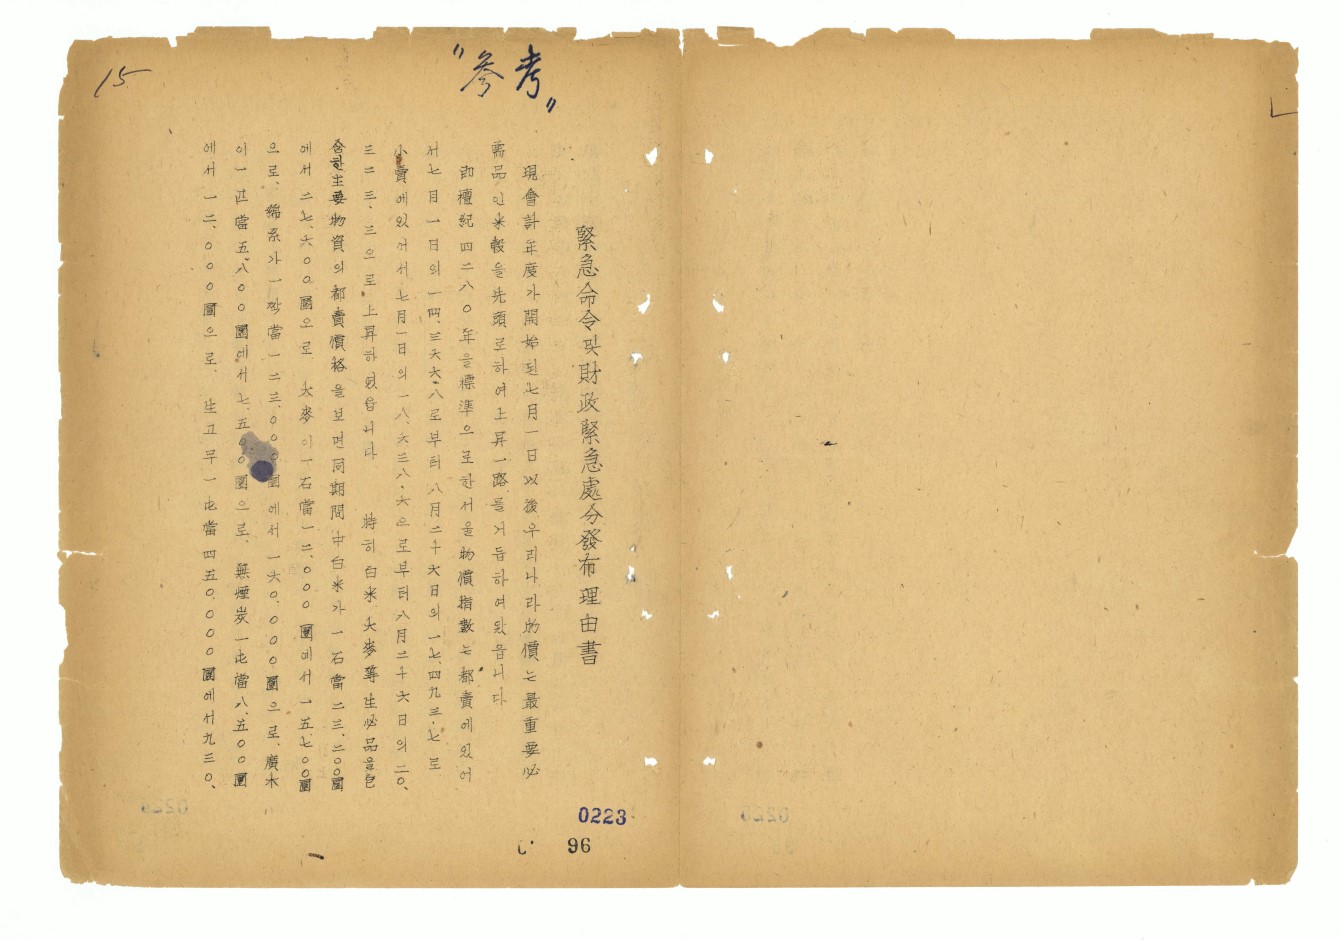 15
"參考"
緊急命令및財政緊急處分發布理由書
現會計年度가開始된七月一日以後우리나라物價는最重要必
需品인米穀을先頭로하여上昇一路를거듭하여왔읍니다
即檀紀四二八〇年을標準으로한서울物價指數는都賣에있어
서七月一日의一四、三六六·八로부터八月二十六日의一七、四九三·七로
小賣에있어서七月一日의一八、六三八·六으로부터八月二十六日의二〇、
三二三、三으로上昇하였읍니다 特히白米 大麥等生必品을包
含한主要物資의都賣價格을보면同期間中白米가一石當二三、二〇〇圜
에서二七、六〇〇圜으로 大麥이一石當一二、〇〇〇圜에서一五、七〇〇圜
으로、綿糸가一짝當一二三、〇〇〇圜에서一六〇、〇〇〇圜으로、廣木
이一匹當五、八〇〇圜에서七、五〇〇圜으로、無煙炭一屯當八、五〇〇圜
에서一二、〇〇〇圜으로、生고무一屯當四五〇、〇〇〇圜에서九三〇、
0223
96